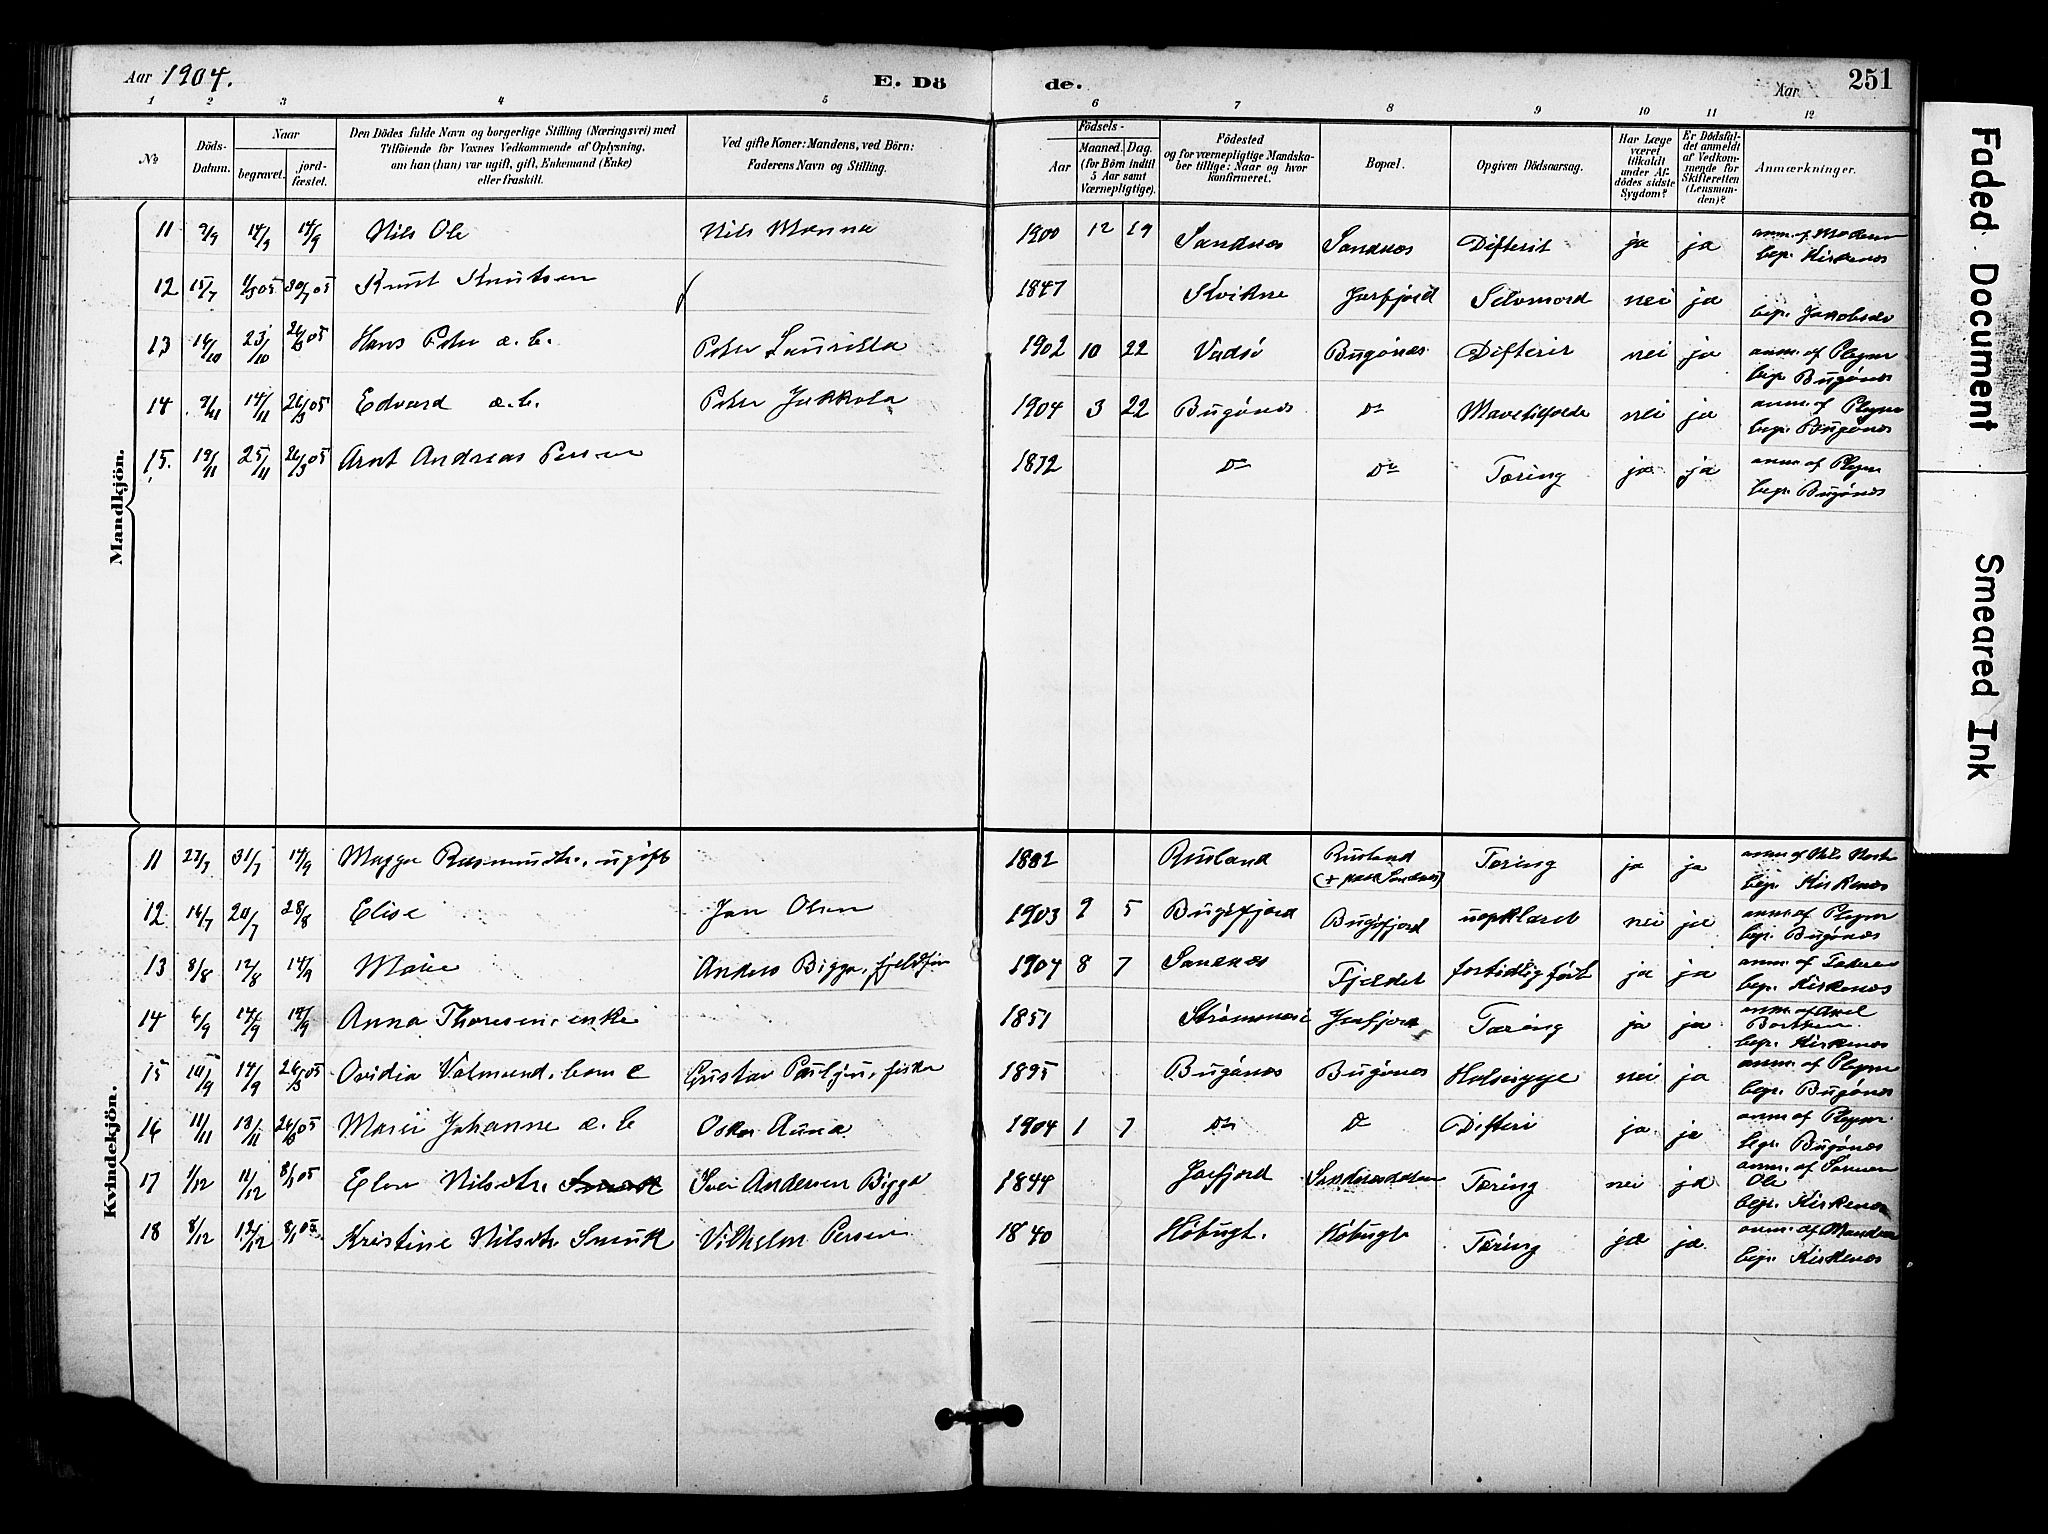 Aar 1904. E. Dö de. Aar 251
1 2 3 4 5 6 7 8 9 10 11 12
No
Döds-Datum.
Naar begravet. jord-fæstet.
Den Dödes fulde Navn og borgerlige Stilling (Næringsvei) med
Tilföiende for Voxnes Vedkommende af Oplysning,
om han (hun) var ugift, gift, Enkemand (Enke)
eller fraskilt.
Ved gifte Koner: Mandens, ved Börn:
Faderens Navn og Stilling.
Födsels-
Aar Maaned. Dag.
(for Börn indtil
5 Aar samt
Værnepligtige).
Födested
og for værnepligtige Mandska-
ber tillige: Naar og hvor
konfirmeret.
Bopæl.
Opgiven Dödsaarsag.
Har Læge
været
tilkaldt
under Af-
dödes sidste
Sygdom?
Er Dödsfal-
det anmeldt
af Vedkom-
mende for
Skifteretten
(Lensman-
den)?
Anmærkninger.
Mandkjön.
11 9/9 14/9 14/9 Nils Ole Nils Manna 1900 12 19 Sandnæs Sandnæs Difterit ja ja anm. af Moderen
begr. Kirkenæs
12 15/7 30/7 05 Knut Knutsen 1847 Kvikne Jarfjord Selvmord nei ja
begr. Jakobselv
13 16/10 23/10 26/3 05 Hans Peter æ. b. Peter Laurikka 1902 10 22 Vadsö Bugönæs Difterit nei ja anm. af Plejer
begr. Bugönæs
14 9/11 14/11 26/3 05 Edvard æ. b. Peter Jakkola 1904 3 22 Bugönæs Do Mavetilfælde nei ja anm. af Plejer
begr. Bugönæs
15. 19/11 25/11 26/3 05 Arnt Andreas Persen 1872 Do Do Tæring ja ja anm. af Plejer
begr. Bugönæs
Kvindekjön.
11 27/7 31/7 14/9 Magga Rasmusdtr. ugift 1882 Rusland Rusland Tæring ja ja
(+ paa Sandnæs) begr. Kirkenæs
12 16/7 20/7 28/8 Elise Jan Olsen 1903 9 5 Bugöfjord Bugöfjord uopklaret nei ja anm. af Plejer
begr. Bugönæs
13 8/8 12/8 14/9 Marie Anders Bigga, fjeldfin 1904 8 7 Sandnæs Fjeldet fortidlig född ja ja anm. af Faderen
begr. Kirkenæs
14 6/9 14/9 14/9 Anna Thoresen, enke 1851 Strömmen Jarfjord Tæring ja ja anm. af Axel
begr. Kirkenæs
15 10/9 14/9 26/3 05 Ovidia Valmund, barn e Gustav Pauljus, fisker 1895 Bugönæs Bugönæs Halsesyge nei ja anm. af Plejer
begr. Bugönæs
16 11/11 18/11 26/3 05 Marie Johanne æ. b Oskar Auna 1904 1 7 Do Do Difteri ja ja anm. af Plejer
begr. Bugönæs
17 1/12 11/12 8/1 05 Elen Nilsdtr. Smuk Iver Andersen Bigga 1844 Jarfjord Sandnesdalen Tæring nei ja anm. af Sönnen
Ole
begr. Kirkenæs
18 8/12 12/12 8/1 05 Kristine Nilsdtr Smuk Vilhelm Persen 1840 Höbugt. Höbugt Tæring ja ja anm. af Manden
begr. Kirkenæs
Faded Document
Smeared Ink